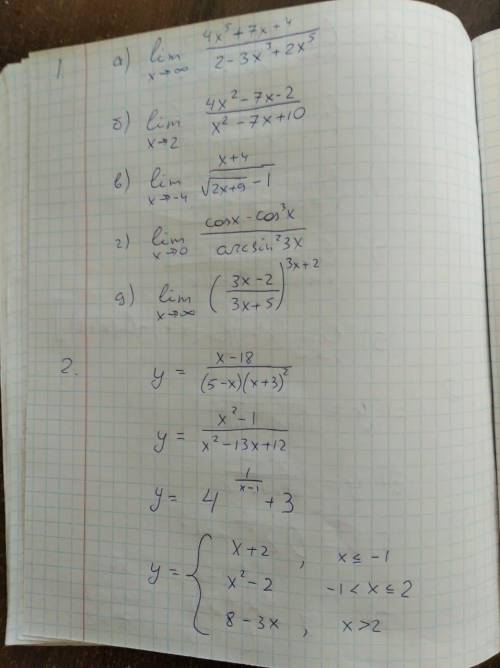 1. а) lim x→∞ (4x⁵ + 7x + 4)/(2 − 3x³ + 2x⁵)
б) lim x→2 (4x² − 7x − 2)/(x² − 7x + 10)
в) lim x→−4 (x+4)/(√(2x+9) − 1)
г) lim x→0 (cosx − cos³x)/(arcsin²3x)
д) lim x→∞ ((3x−2)/(3x+5))^(3x+2)
2. y = (x−18)/((5−x)(x+3)²)
y = (x²−1)/(x²−13x+12)
y = 4^(1/(x−1)) + 3
y = { x+2 , x ≤ −1
x²−2 −1 < x ≤ 2
8−3x , x > 2